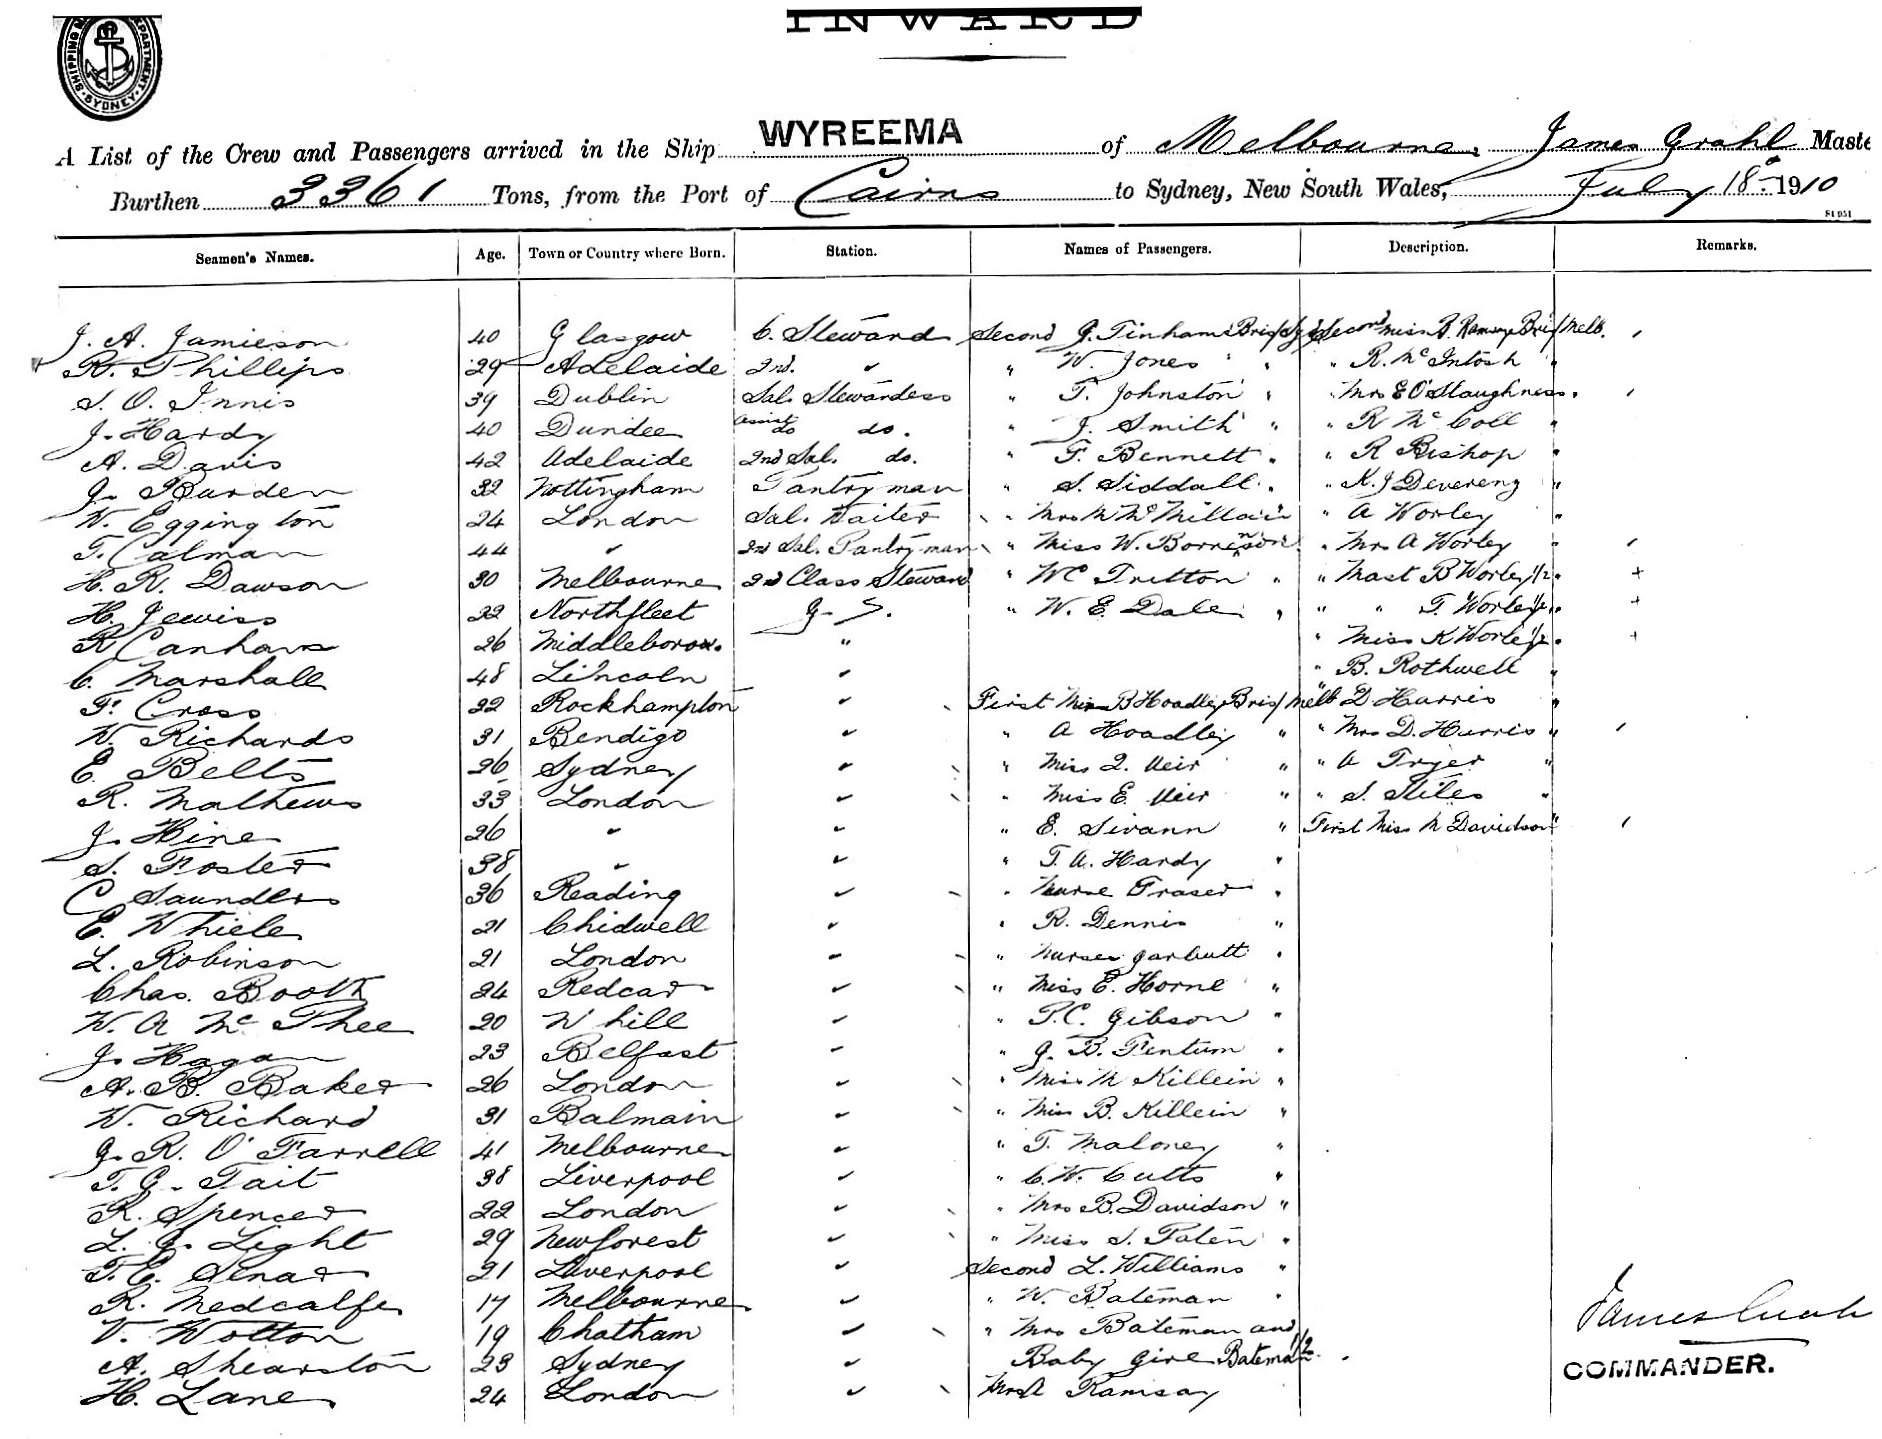 INWARD
SHIPPING DEPARTMENT SYDNEY
A List of the Crew and Passengers arrived in the Ship WYREEMA of Melbourne, James Grahl Maste
Burthen 3361 Tons, from the Port of Cairns to Sydney, New South Wales, July 18 1910
Seamen's Names. Age. Town or Country where Born. Station. Names of Passengers. Description. Remarks.
J. A. Jamieson 40 Glasgow C. Steward Second J. Tinham Bris/Syd Second Miss B. Ramsay Bris/Melb.
R. Phillips 29 Adelaide 2nd. " " W. Jones " " R. McIntosh "
S. O. Innis 39 Dublin Sal. Stewardess " T. Johnston " " Mrs E O'Slaughness.
J. Hardy 40 Dundee Assist do do. " J. Smith " " R McColl "
A. Davis 42 Adelaide 2nd Sal. do. " F. Bennett " " R Bishop "
J. Burden 32 Nottingham Pantry man " S. Siddall " "
W. Eggington 24 London Sal. Waiter " Mrs McMillan " A Worley "
T. Calman 44 " 2nd Sal. Pantryman " Miss W. " Mrs A Worley "
H. R. Dawson 30 Melbourne 2nd Class Steward " Tritton " " Mast B Worley 1/2 " +
H. Jewiss 22 Northfleet G. S. " W. E. Dale " " " T. Worley 1/2 " +
R Canham 26 Middleboro. " " Miss K Worley 1/2 " +
C. Marshall 48 Lincoln " " B. Rothwell "
F. Cross 22 Rockhampton " First Miss B Hoadley Bris/Melb " D Harris "
W. Richards 31 Bendigo " " A Hoadley " " Mrs D. Harris "
E. Belts 26 Sydney " " Miss Q. Weir " " A Fryer "
R. Mathews 33 London " " Miss E. Weir " " S. Stiles "
J. Hine 26 " " " E. Sivann " First Miss M Davidson "
S. Foster 38 " " " T. A. Hardy "
C Saunders 36 Reading " " Nurse Fraser "
E. Whiele 21 Chidwell " " R. Dennis "
L. Robinson 21 London " " Nurse Garbutt "
Chas. Booth 24 Redcar " " Miss E. Horne "
W. A McPhee 20 W hill " " P.C. Gibson "
J. Hagan 23 Belfast " " G. B. Fentum "
A. B. Baker 26 London " " Miss M Killein "
W. Richard 31 Balmain " " Miss B. Killein "
J. R. O'Farrell 41 Melbourne " " T. Maloney "
T. G. Tait 38 Liverpool " " C. W. Cutts "
R. Spencer 22 London " " Mrs B. Davidson "
L. J. Light 29 Newforest " " Miss S. Paten "
T. C. Senar 21 Liverpool " Second L. Williams "
R. Medcalfe 17 Melbourne " " W. Bateman "
V. Wotton 19 Chatham " " Mrs Bateman and
A. Shearston 23 Sydney " Baby Girl Bateman 1/2 "
H. Lane 24 London " Mrs A Ramsay
James Grahl
COMMANDER.